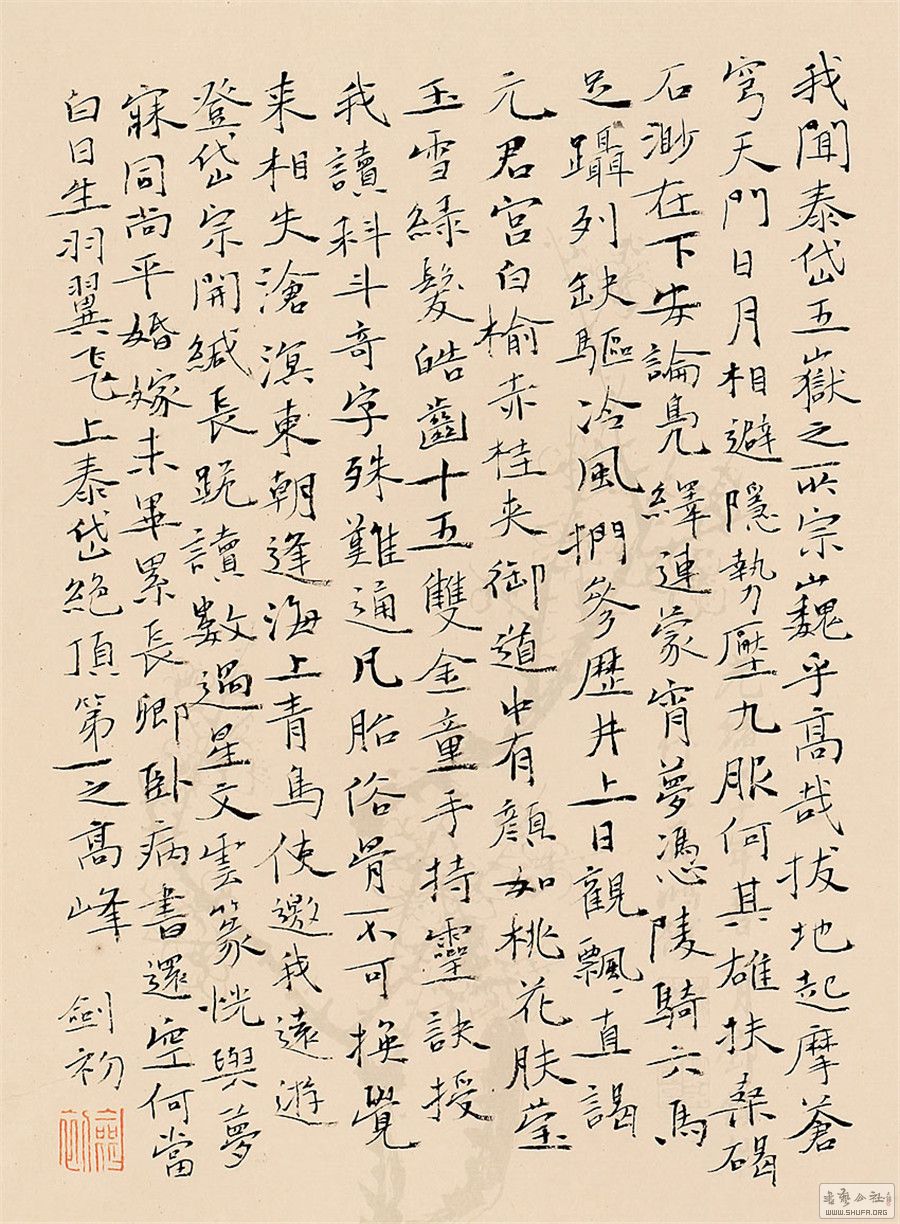 我聞泰岱五嶽之所宗巍乎高哉拔地起摩蒼
穹天門日月相避隱勢壓九服何其雄扶桑碣
石渺在下安論鳧繹連蒙宵夢憑陵騎六馬
足躡列缺驅冷風捫參歷井上日觀飄飄直謁
元君宮白榆赤桂夾御道中有顏如桃花膚瑩
玉雪綠髮皓齒十五雙金童手持靈訣授
我讀科斗奇字殊難通凡胎俗骨不可換覺
来相失滄溟東朝逢海上青鳥使邀我遠遊
登岱宗開緘長跪讀數過星文雲篆恍與夢
寐同尚平婚嫁未畢累長卿臥病書還空何當
白日生羽翼飛上泰岱絕頂第一之高峰
劍初
書藝公社
WWW.SHUFA.ORG